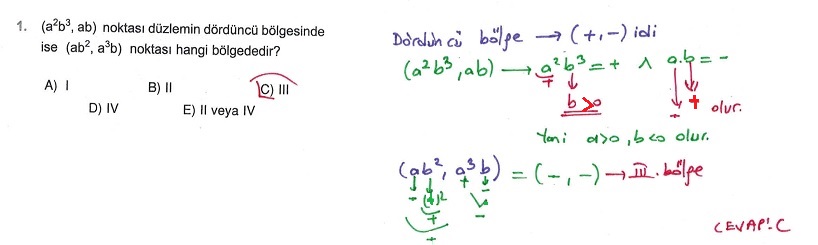 1. (a²b³, ab) noktası düzlemin dördüncü bölgesinde
ise (ab², a³b) noktası hangi bölgededir?
A) I B) II C) III
D) IV E) II veya IV
Dördüncü bölge → (+,-) idi
(a²b³, ab) → a²b³ = + ∧ a.b = -
+ ↓ ↓ ↓
b > 0 - + olur.
Yani a>0, b<0 olur.
(ab², a³b) = (-,-) → III. bölge
↓ ↓ + -
- (+)² -
+
-
CEVAP: C